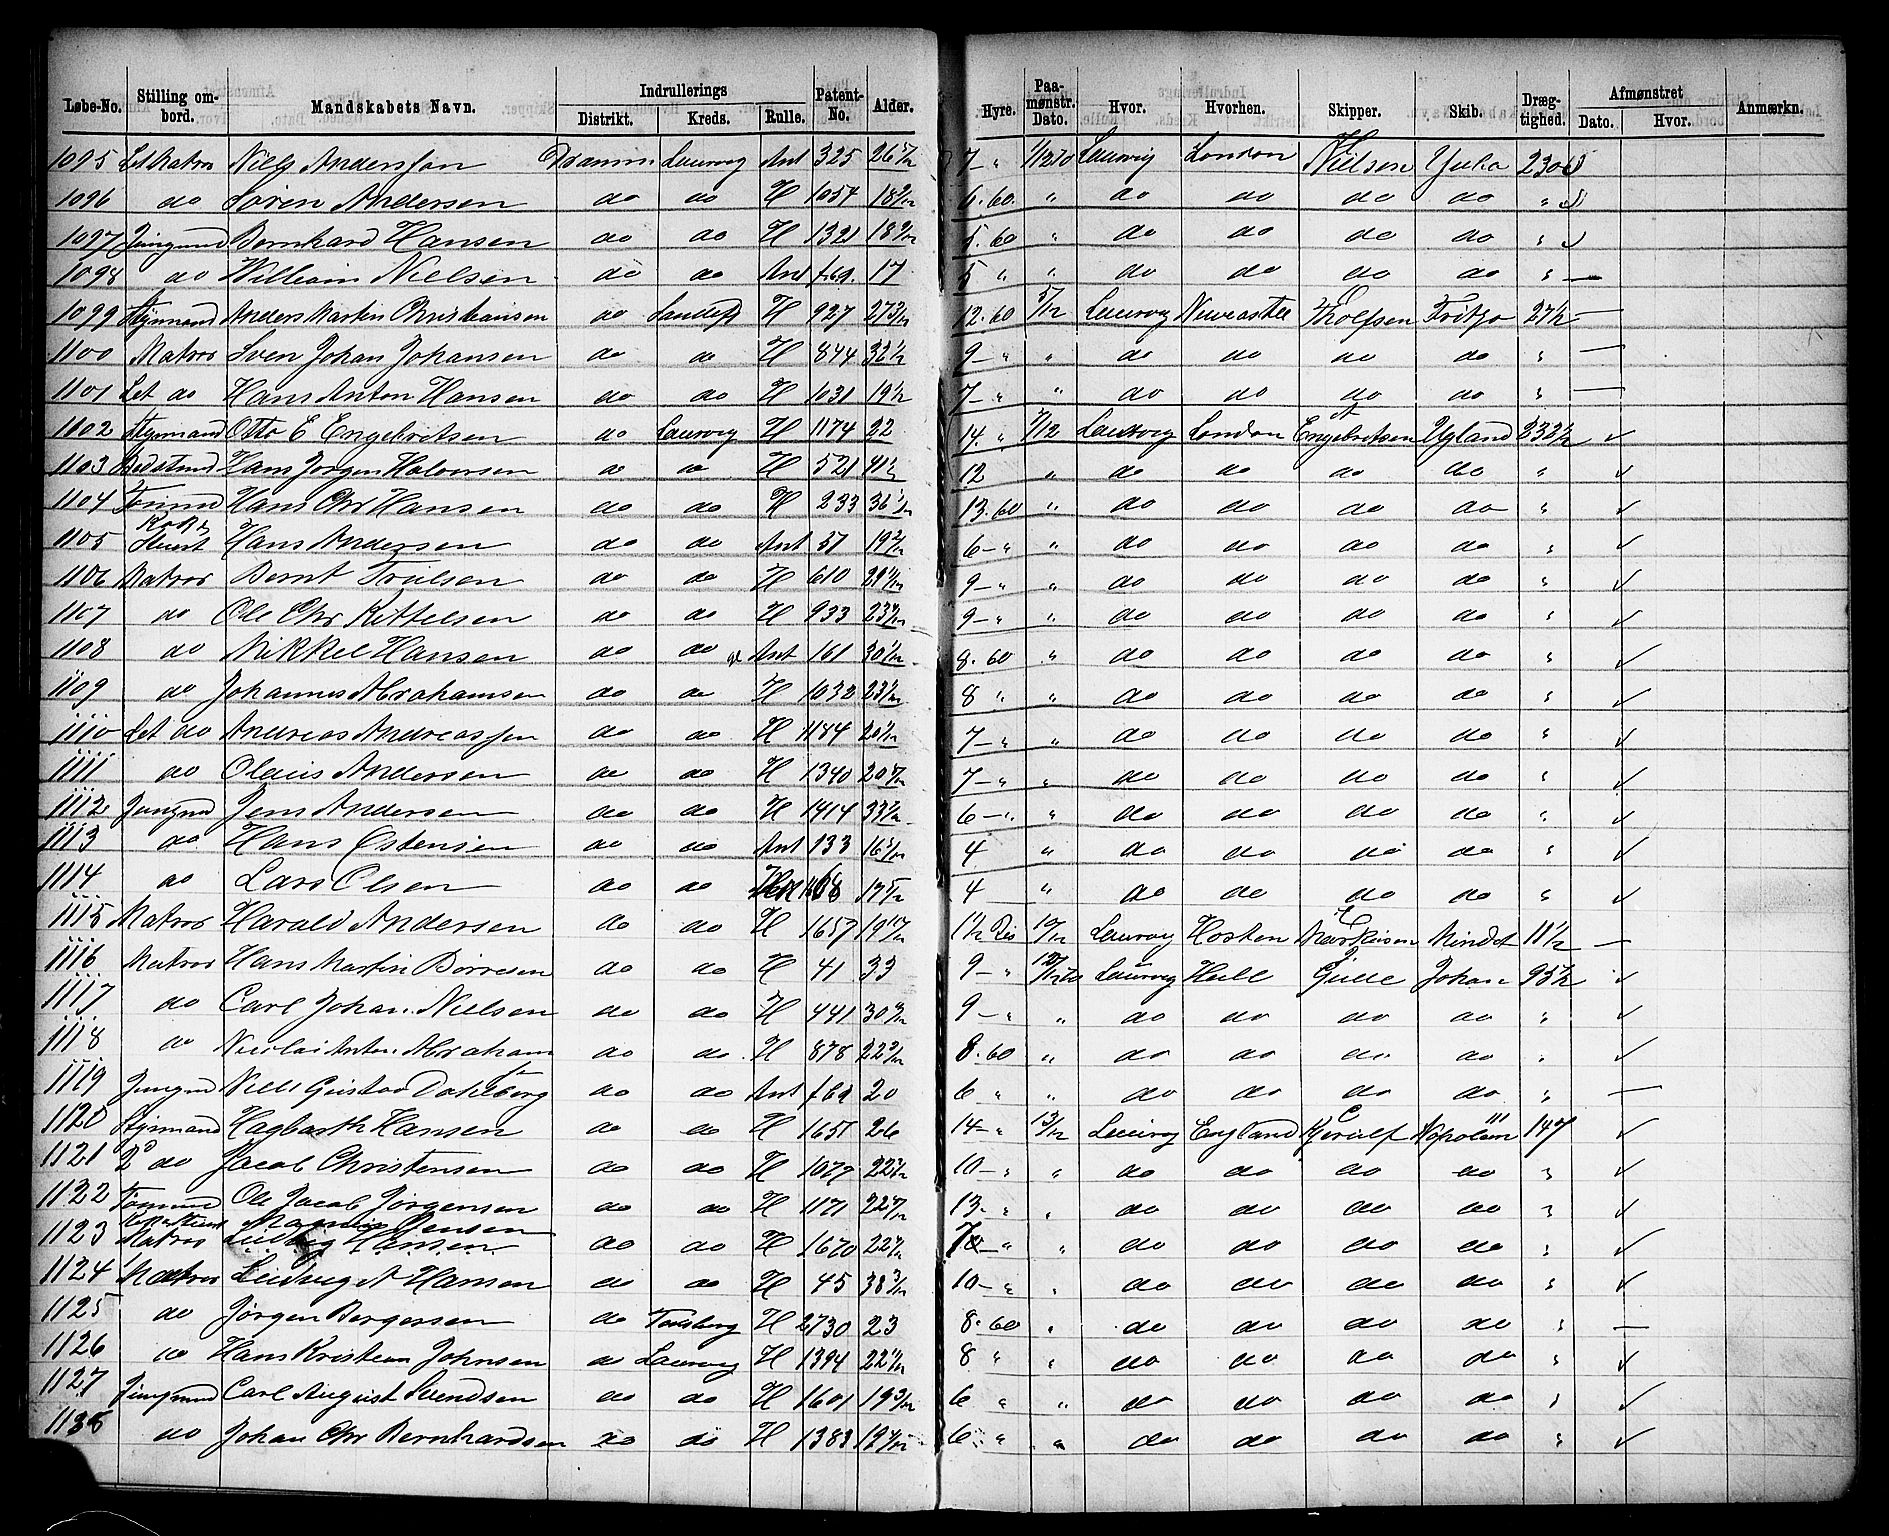 Løbe-No. Stilling ombord. Mandskabets Navn. Indrullerings Distrikt. Kreds. Rulle. Patent-No. Alder. Hyre. Paamønstr. Dato. Hvor. Hvorhen. Skipper. Skib. Drægtighed. Afmønstret Dato. Hvor. Anmærkn.
1095 Let Matros Niels Anderssen Dramm Laurvig Ant 325 26 7 - " Laurvig London Nielsen 230
1096 do Søren Andersen do do H 1054 18 6.60 " do do do do "
1097 Jungmd Bernhard Hansen do do H 1321 18 5.60 " do do do do "
1098 do William Nielsen do do Ant 17 5 " " do do do do " —
1099 Styrmand Anders Martin Christiansen do Sandefj H 927 27 12.60 5/12 Laurvig Newcastle Tholfsen Fritjo 27½ —
1100 Matros Sven Johan Johansen do do H 844 32 9 - " " do do do do " —
1101 Let do Hans Anton Hansen do do H 1031 19½ 7 - " " do do do do " —
1102 Styrmand Otto E Engebritsen do Laurvig H 1174 22 14 " 7/12 Laurvig London Engebritsen Ugland 232½ ✓
1103 Hans Jørgen Halvorsen do do H 521 41 12 " do do do do " ✓
1104 Tømmd Hans Chr Hansen do do H 233 36 13.60 " do do do do " ✓
1105 Kok & Stuert Hans Andersen do do Ant 51 19 6 - " " do do do do " ✓
1106 Matros Bernt Trulsen do do H 610 9 - " " do do do do " ✓
1107 do Ole Chr Kittelsen do do H 933 23 9 - " " do do do do " ✓
1108 do Nikkel Hansen do do Ant 161 30 8.60 " do do do do " ✓
1109 do Johannes Abrahamsen do do H 1032 23 8 " " do do do do " ✓
1110 Let do Andreas Andreassen do do H 1184 20 7 - " " do do do do " ✓
1111 do Olaus Andersen do do H 1340 20 7 - " " do do do do " ✓
1112 Jungmd Jens Andersen do do H 1414 33 6 - " " do do do do " ✓
1113 do Hans Østensen do do Ant 133 16 4 " do do do do " ✓
1114 do Lars Olsen do do 17 4 " do do do do " ✓
1115 Matros Harald Andersen do do H 1657 19 1½ 10/12 Laurvig Horten Mindet 11½ —
1116 Matros Hans Martin Børresen do do H 41 33 9 - " Laurvig Hull Gulle Johan 95½ ✓
1117 do Carl Johan Nielsen do do H 441 30 9 - " " do do do do " ✓
1118 do Nicolai Anton Abraham do do H 878 22 8.60 " do do do do " ✓
1119 Jungmd Niels Gustav Dahlberg do do Ant 20 6 " " do do do do " —
1120 Styrmand Hagbarth Hansen do do H 1651 26 14 - " 13/12 Laurvig England Kjerulf Napoleon III 147 ✓
1121 2 do Jacob Christensen do do H 1077 22 10 - " " do do do do " ✓
1122 Tømmd Ole Jacob Jørgensen do do H 1171 22 13 - " " do do do do " ✓
1123 Matros Ludvig Hansen Jensen do do H 1670 22 " " do do do do " ✓
1124 Matros Ludvig A Hansen do do H 45 38 3/12 10 - " " do do do do " ✓
1125 do Jørgen Børgessen do Tønsberg H 2730 23 8.60 " do do do do " —
1126 do Hans Kristian Johnsen do Laurvig H 1394 22 8 " " do do do do " ✓
1127 Jungmd Carl August Svendsen do do H 1601 19 3/12 6 " " do do do do " ✓
do Johan Chr Bernhardsen do do H 1383 6 " " do do do do " ✓